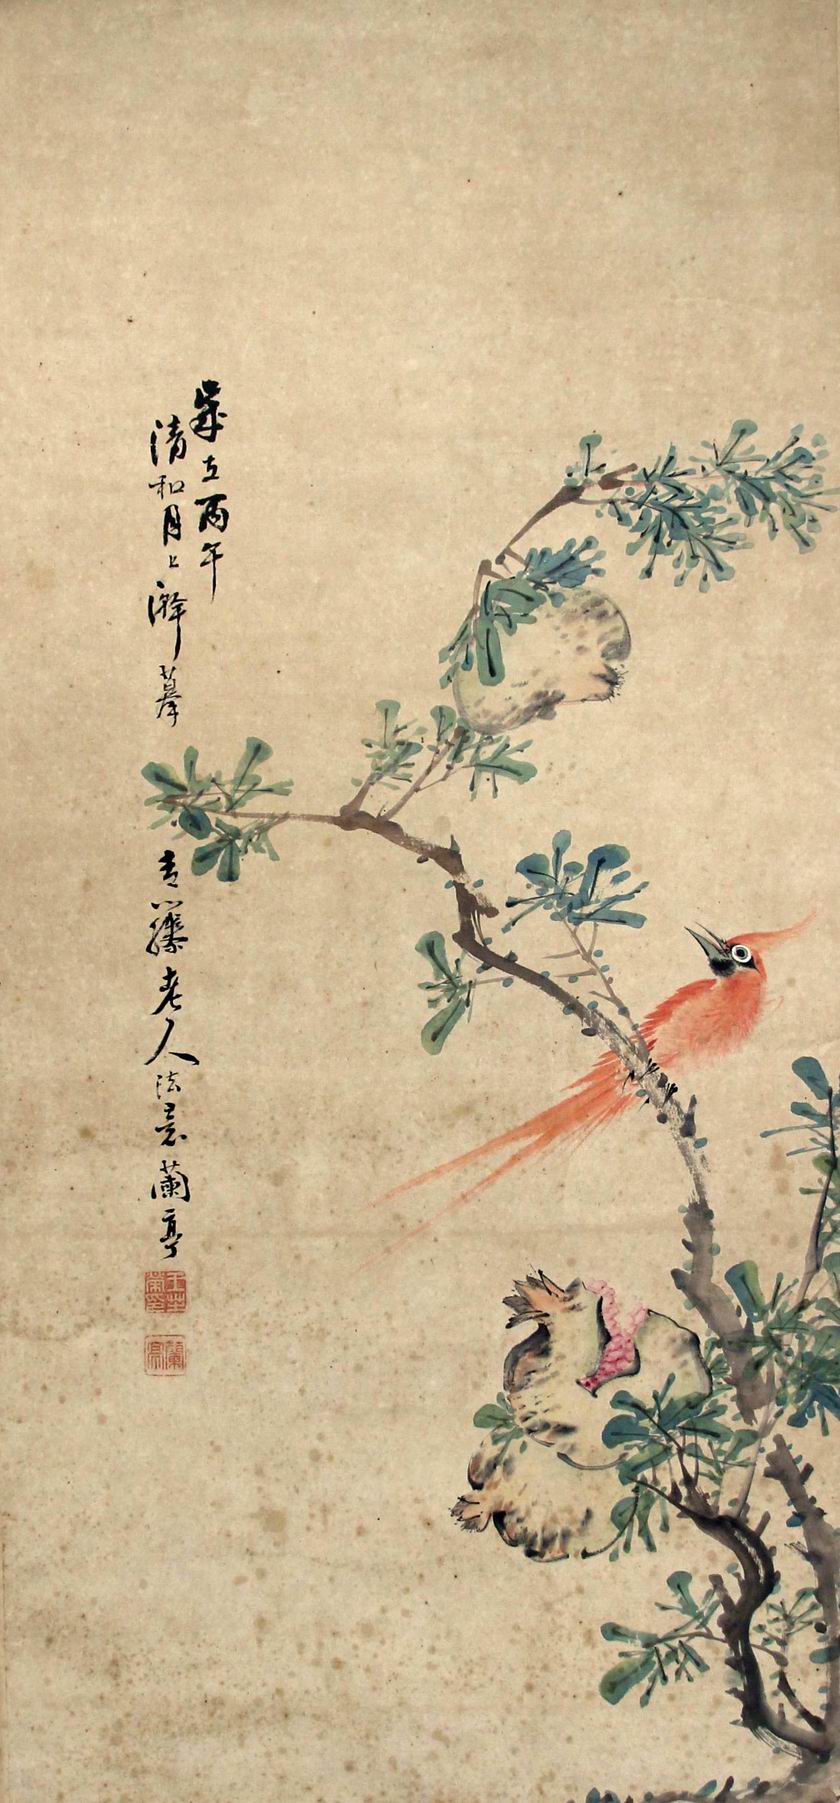 歲在丙午
清和月上澣摹青藤老人法意蘭亭